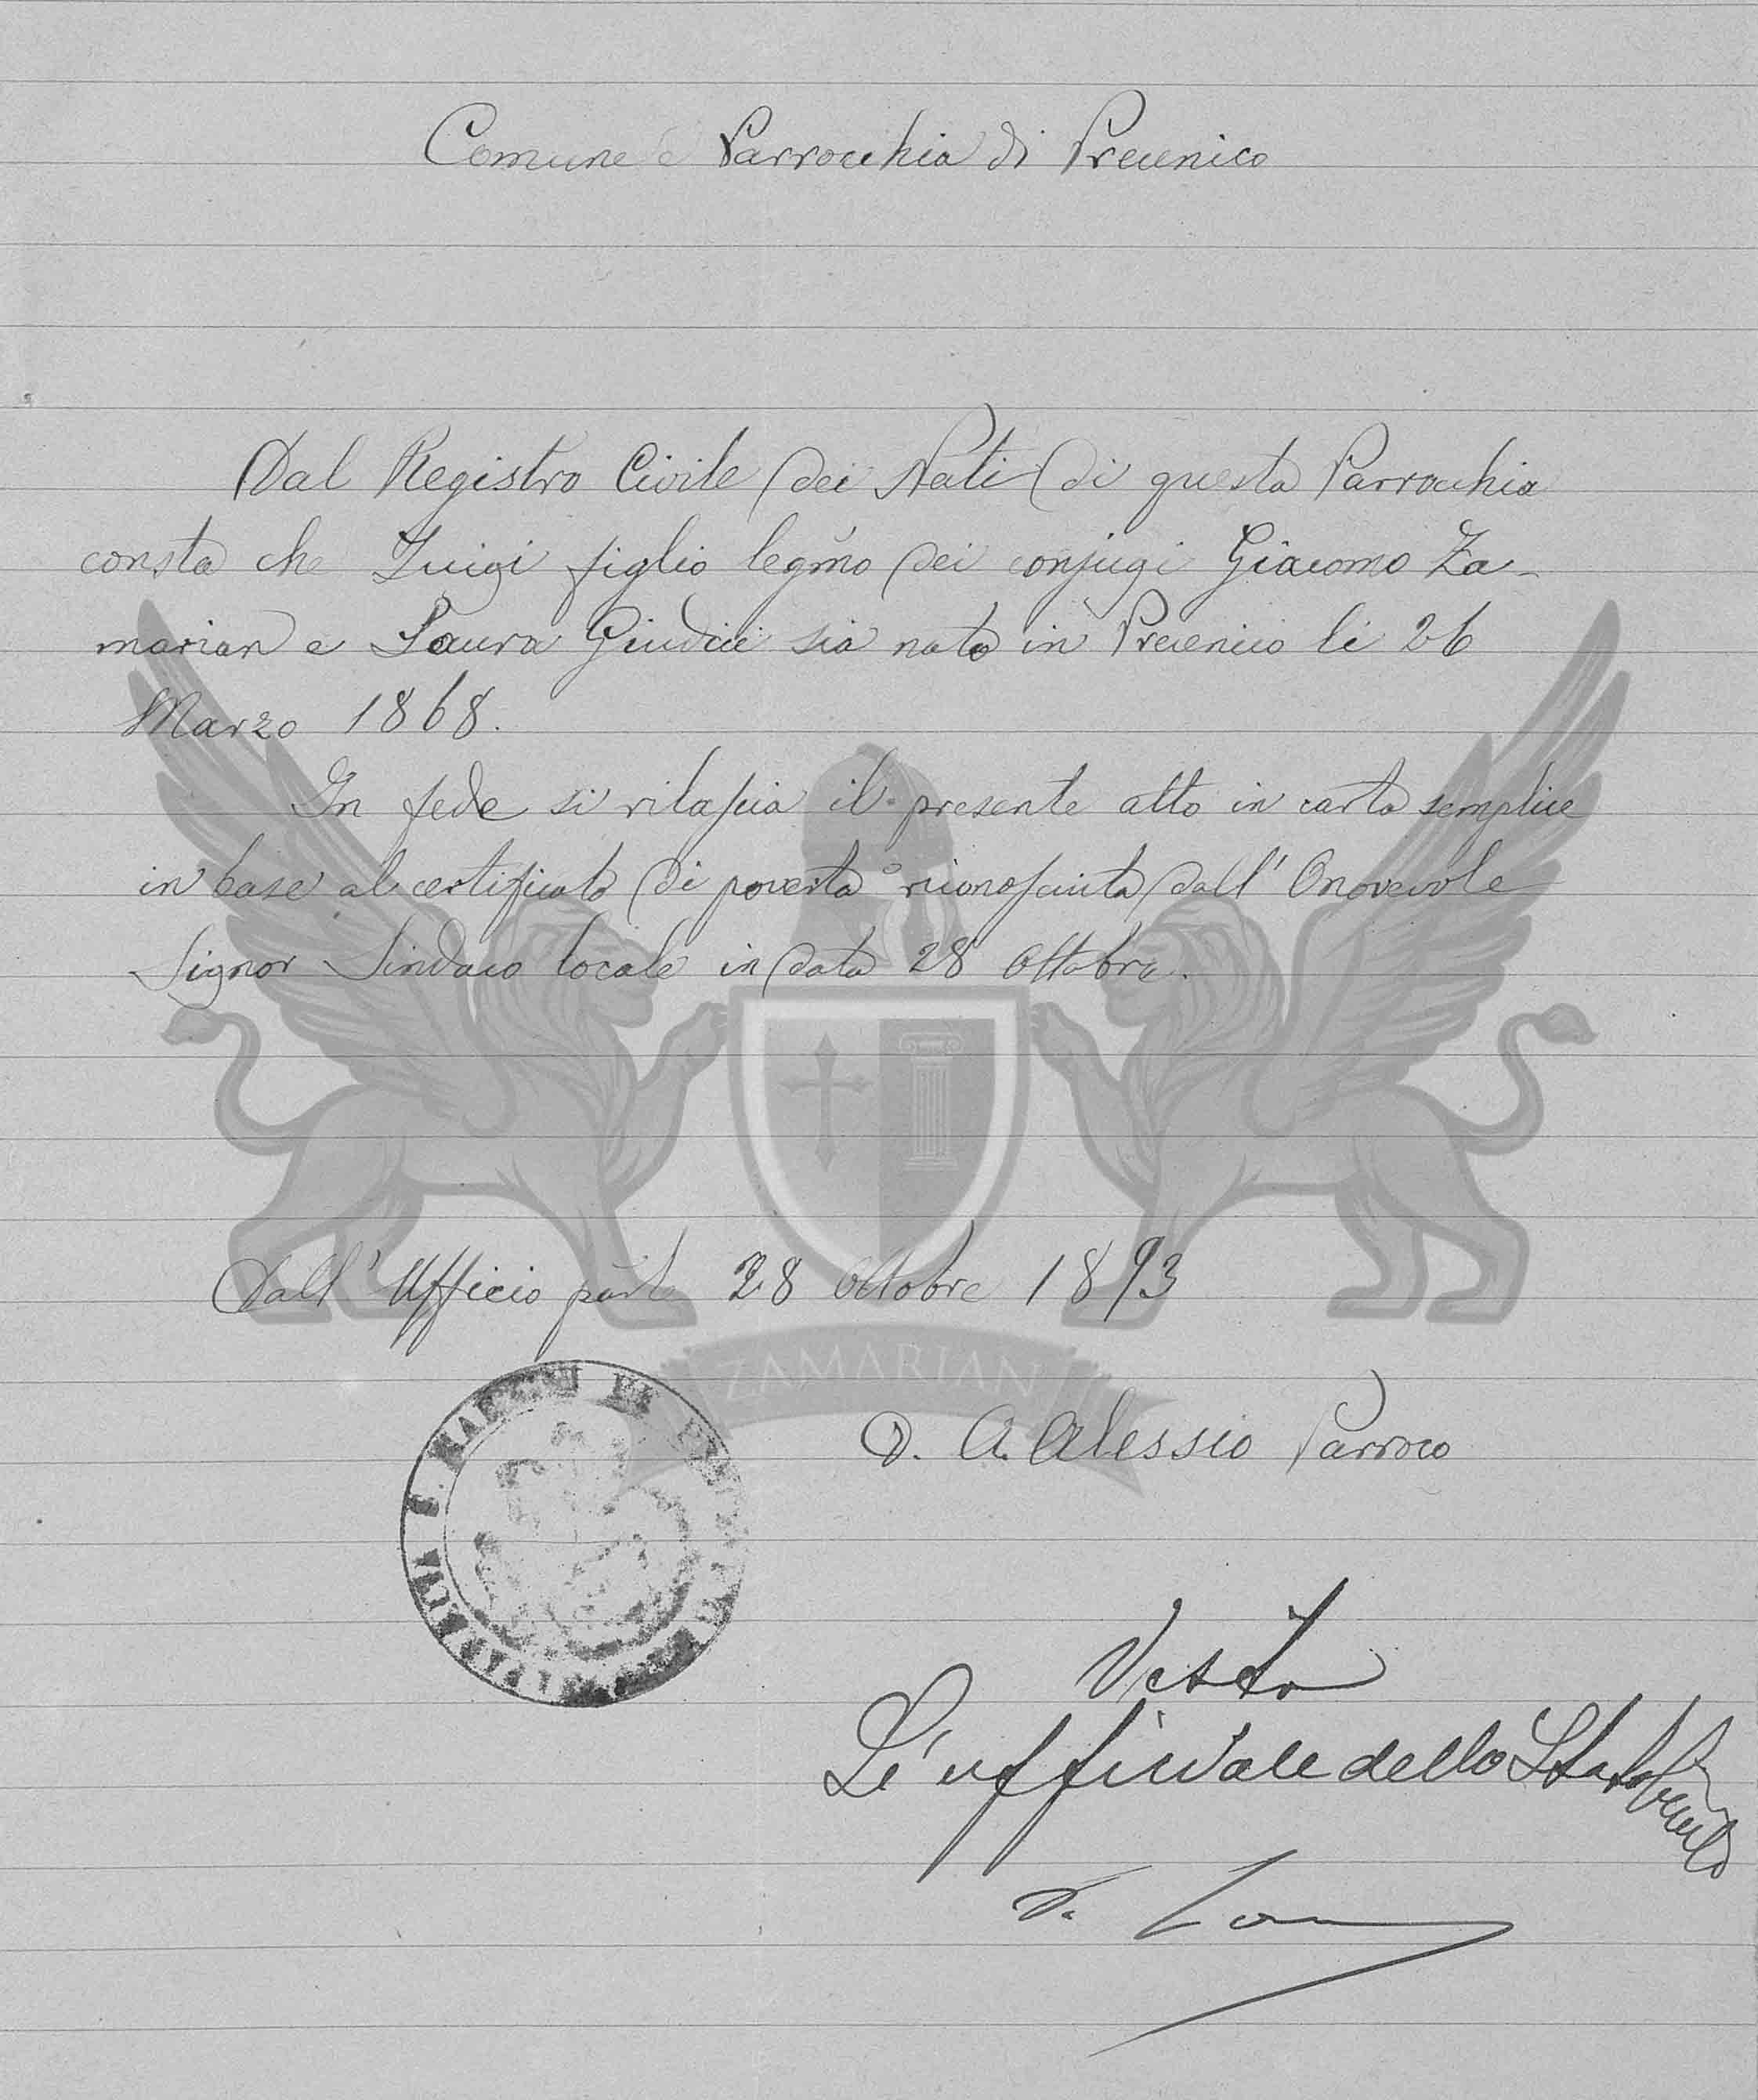 Comune e Parrocchia di Precenico
Dal Registro Civile dei Nati di questa Parrocchia
consta che Luigi figlio legmo dei conjugi Giacomo Za-
marian e Laura Giudici sia nato in Precenico li 26
Marzo 1868.
In fede si rilascia il presente atto in carta semplice
in base al certificato di poverta riconosciuta dall' Onorevole
Signor Sindaco locale in data 28 Ottobre.
Dall' Ufficio 28 Ottobre 1893
ZAMARIAN
D. A. Alessio Parroco
Visto
L' uffiziale dello Stato Civile